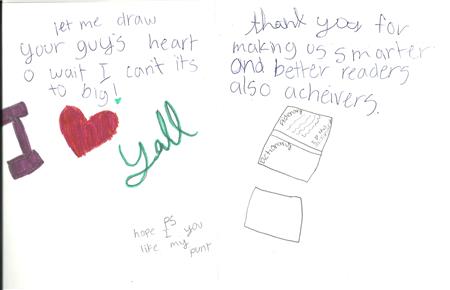 let me draw
your guy's heart
o wait I can't its
to big!
I ❤ Yall
PS
hope I you
like my punt
thank you for
making us smarter
and better readers
also acheivers.